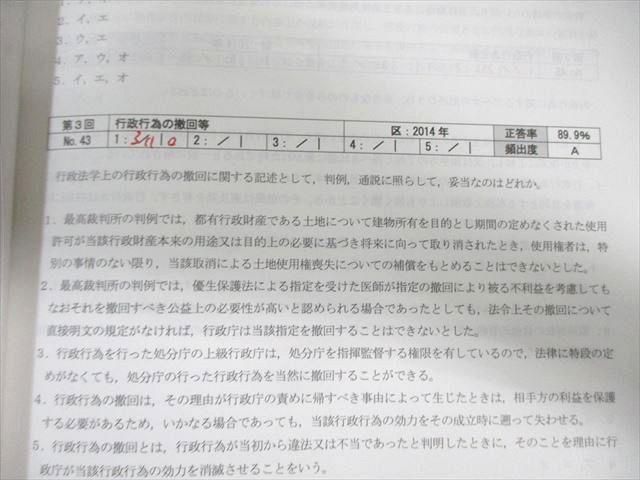 3. ウ、エ
4. ア、ウ、オ
5. イ、エ、オ
第3回 行政行為の撤回等 区：2014年 正答率 89.9%
No. 43 1：3/11 0 2： / | 3： / | 4： / | 5： / | 頻出度 A
行政法学上の行政行為の撤回に関する記述として，判例，通説に照らして，妥当なのはどれか。
1．最高裁判所の判例では，都有行政財産である土地について建物所有を目的とし期間の定めなくされた使用
許可が当該行政財産本来の用途又は目的上の必要に基づき将来に向って取り消されたとき，使用権者は，特
別の事情のない限り，当該取消による土地使用権喪失についての補償をもとめることはできないとした。
2．最高裁判所の判例では，優生保護法による指定を受けた医師が指定の撤回により被る不利益を考慮しても
なおそれを撤回すべき公益上の必要性が高いと認められる場合であったとしても，法令上その撤回について
直接明文の規定がなければ，行政庁は当該指定を撤回することはできないとした。
3．行政行為を行った処分庁の上級行政庁は，処分庁を指揮監督する権限を有しているので，法律に特段の定
めがなくても，処分庁の行った行政行為を当然に撤回することができる。
4．行政行為の撤回は，その理由が行政庁の責めに帰すべき事由によって生じたときは，相手方の利益を保護
する必要があるため，いかなる場合であっても，当該行政行為の効力をその成立時に遡って失わせる。
5．行政行為の撤回とは，行政行為が当初から違法又は不当であったと判明したときに，そのことを理由に行
政庁が当該行政行為の効力を消滅させることをいう。